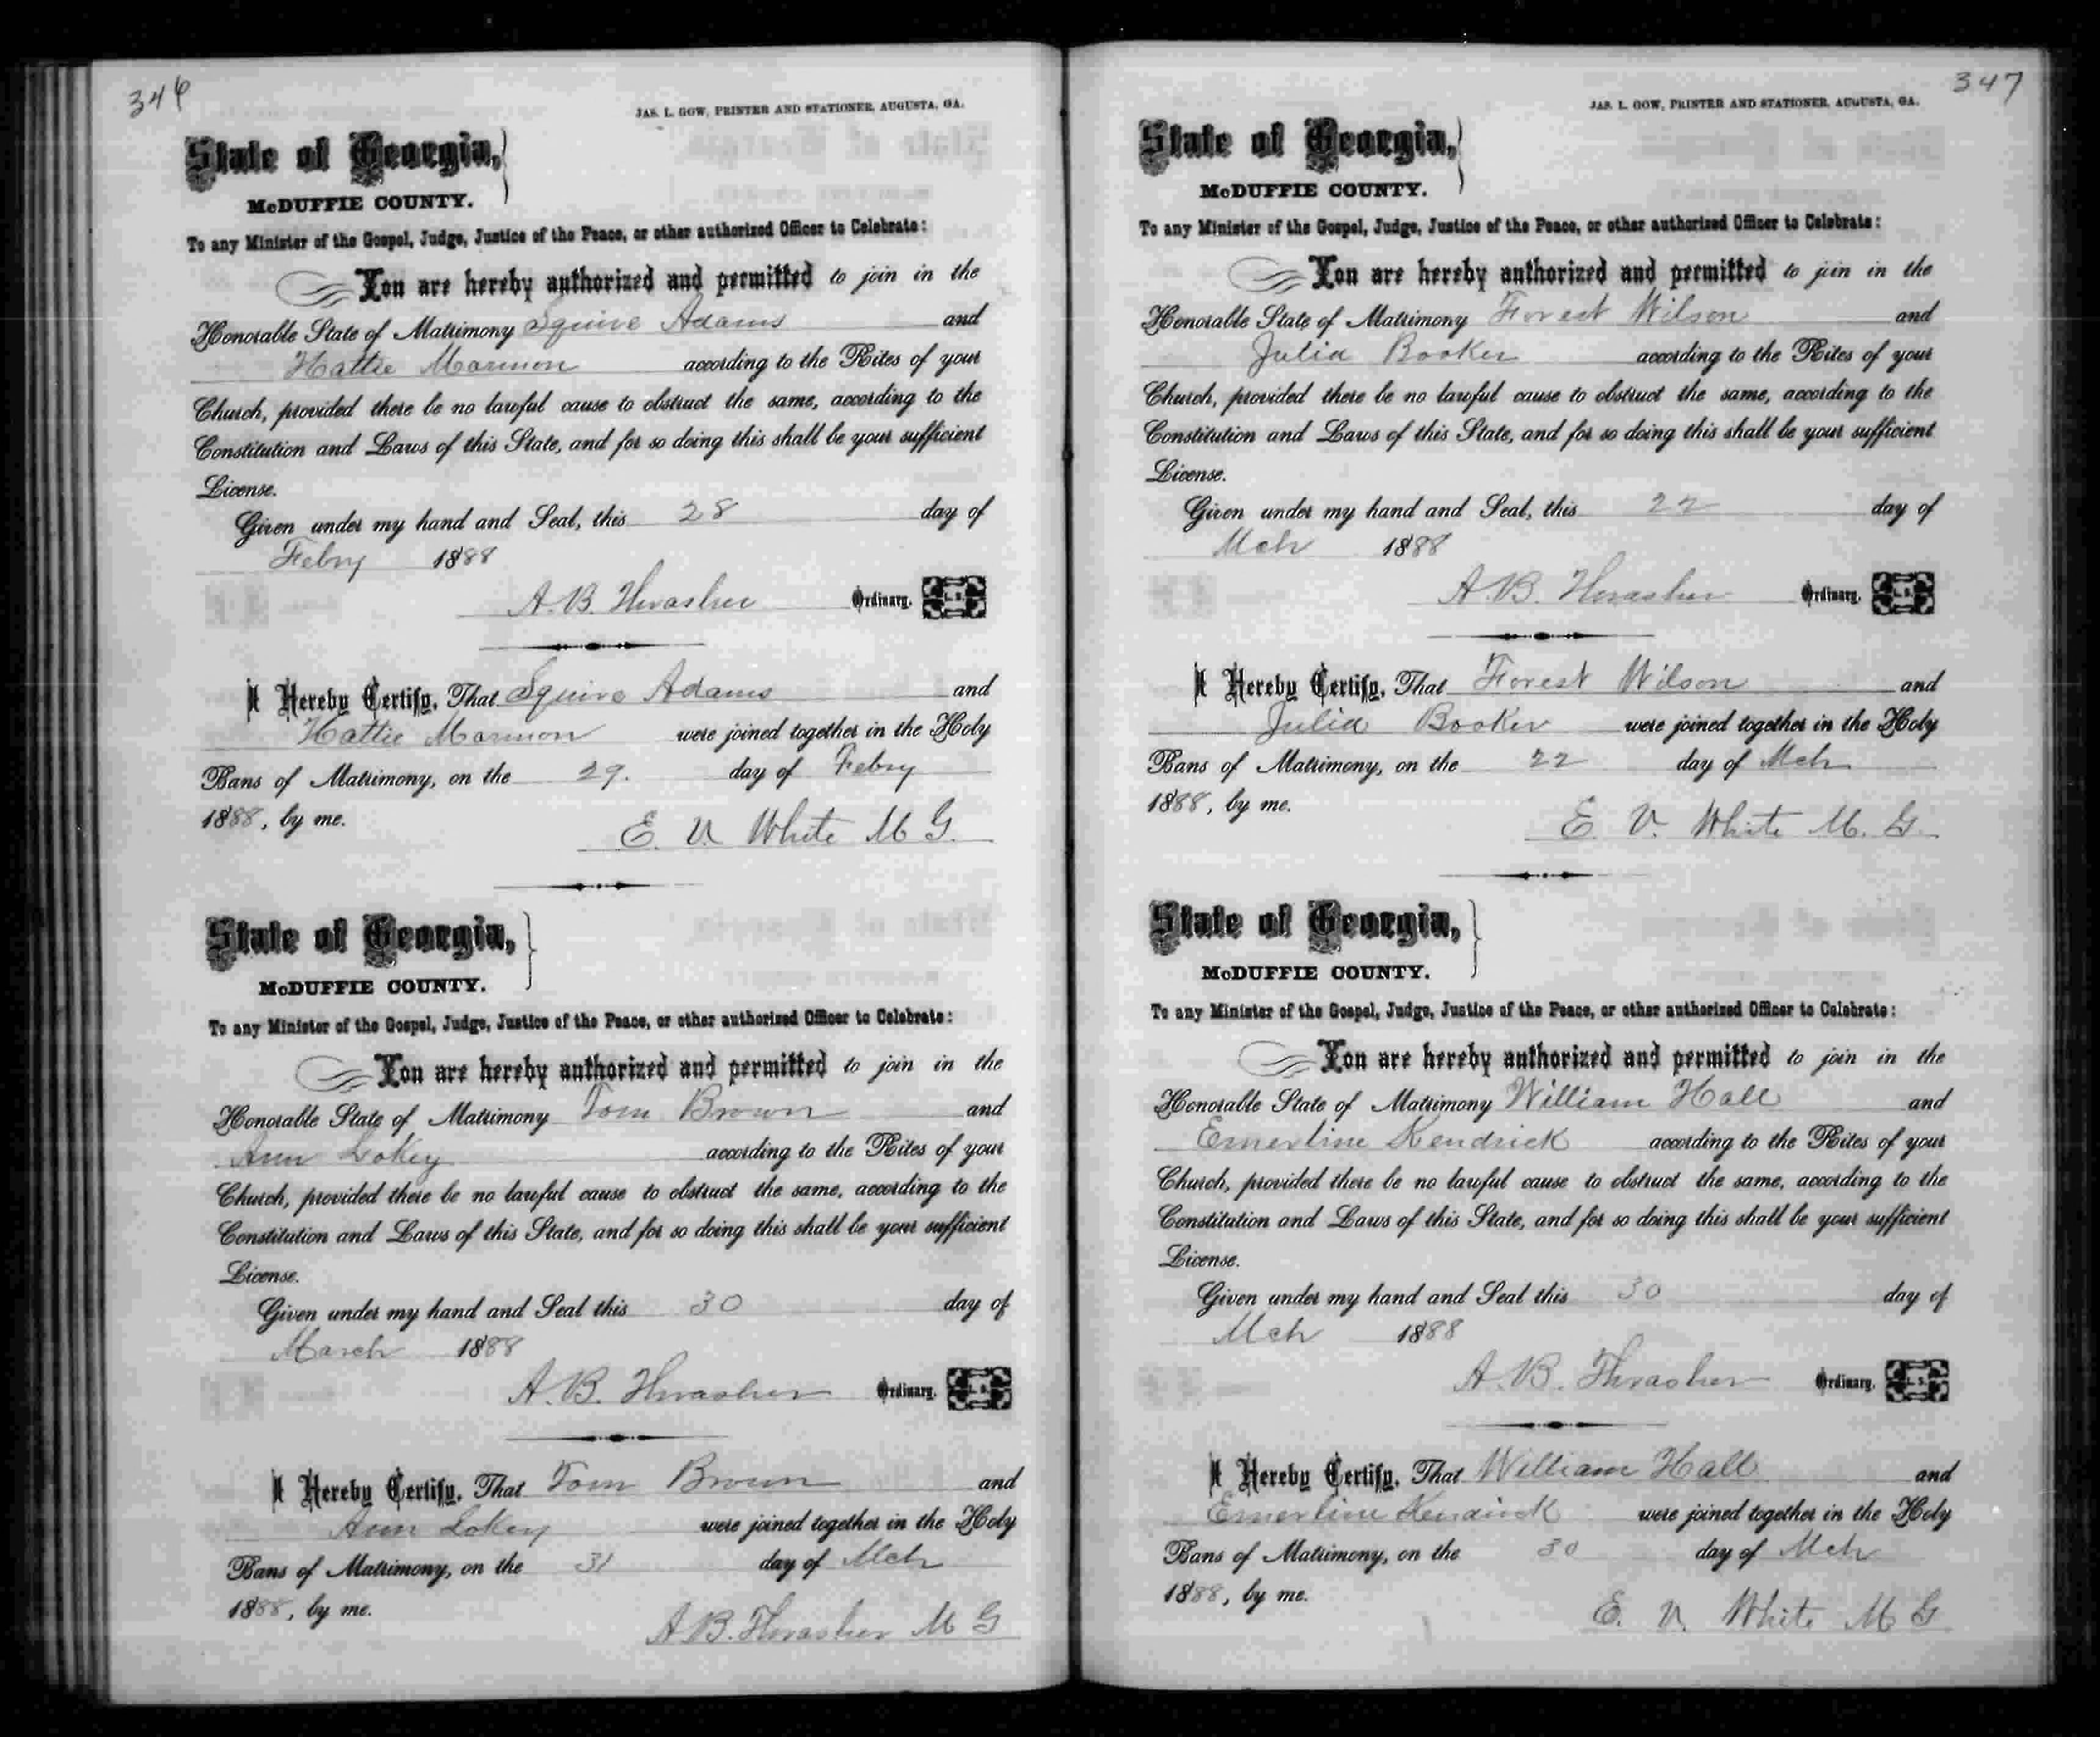 346
JAS. L. GOW, PRINTER AND STATIONER, AUGUSTA, GA.
State of Georgia,
McDUFFIE COUNTY.
To any Minister of the Gospel, Judge, Justice of the Peace, or other authorized Officer to Celebrate:
You are hereby authorized and permitted to join in the
Honorable State of Matrimony Squire Adams and
Hattie Marmon according to the Rites of your
Church, provided there be no lawful cause to obstruct the same, according to the
Constitution and Laws of this State, and for so doing this shall be your sufficient
License.
Given under my hand and Seal, this 28 day of
Febry 1888
A. B. Thrasher Ordinary. L. S.
I Hereby Certify, That Squire Adams and
Hattie Marmon were joined together in the Holy
Bans of Matrimony, on the 29. day of Febry
1888, by me.
E. V. White M G.
State of Georgia,
McDUFFIE COUNTY.
To any Minister of the Gospel, Judge, Justice of the Peace, or other authorized Officer to Celebrate:
You are hereby authorized and permitted to join in the
Honorable State of Matrimony Tom Brown and
Ann Lokey according to the Rites of your
Church, provided there be no lawful cause to obstruct the same, according to the
Constitution and Laws of this State, and for so doing this shall be your sufficient
License.
Given under my hand and Seal this 30 day of
March 1888
A. B. Thrasher Ordinary. L. S.
I Hereby Certify, That Tom Brown and
Ann Lokey were joined together in the Holy
Bans of Matrimony, on the 31 day of Mch
1888, by me.
A. B. Thrasher M G
347
JAS. L. GOW, PRINTER AND STATIONER, AUGUSTA, GA.
State of Georgia,
McDUFFIE COUNTY.
To any Minister of the Gospel, Judge, Justice of the Peace, or other authorized Officer to Celebrate:
You are hereby authorized and permitted to join in the
Honorable State of Matrimony Forest Wilson and
Julia Booker according to the Rites of your
Church, provided there be no lawful cause to obstruct the same, according to the
Constitution and Laws of this State, and for so doing this shall be your sufficient
License.
Given under my hand and Seal, this 22 day of
Mch 1888
A. B. Thrasher Ordinary. L. S.
I Hereby Certify, That Forest Wilson and
Julia Booker were joined together in the Holy
Bans of Matrimony, on the 22 day of Mch
1888, by me.
E. V. White M. G.
State of Georgia,
McDUFFIE COUNTY.
To any Minister of the Gospel, Judge, Justice of the Peace, or other authorized Officer to Celebrate:
You are hereby authorized and permitted to join in the
Honorable State of Matrimony William Hall and
Emerline Kendrick according to the Rites of your
Church, provided there be no lawful cause to obstruct the same, according to the
Constitution and Laws of this State, and for so doing this shall be your sufficient
License.
Given under my hand and Seal this 30 day of
Mch 1888
A. B. Thrasher Ordinary. L. S.
I Hereby Certify, That William Hall and
Emerline Kendrick were joined together in the Holy
Bans of Matrimony, on the 30 day of Mch
1888, by me.
E. V. White M G